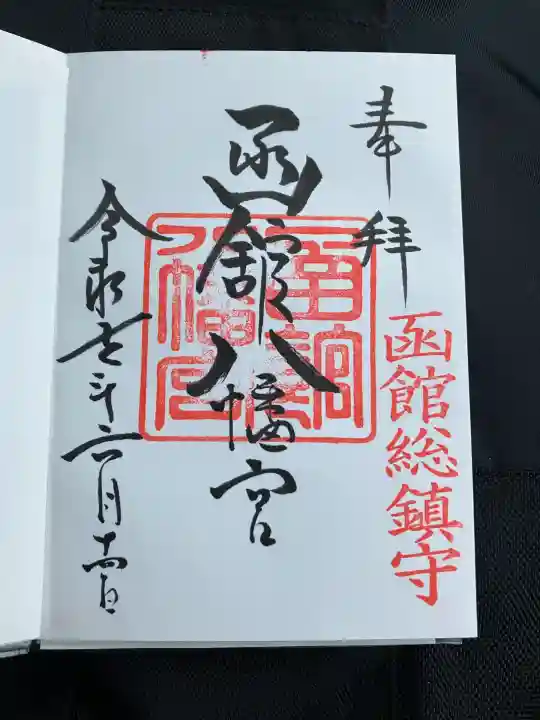 奉拝
函館総鎮守
函館八幡宮
函館八幡宮
令和七年六月十四日